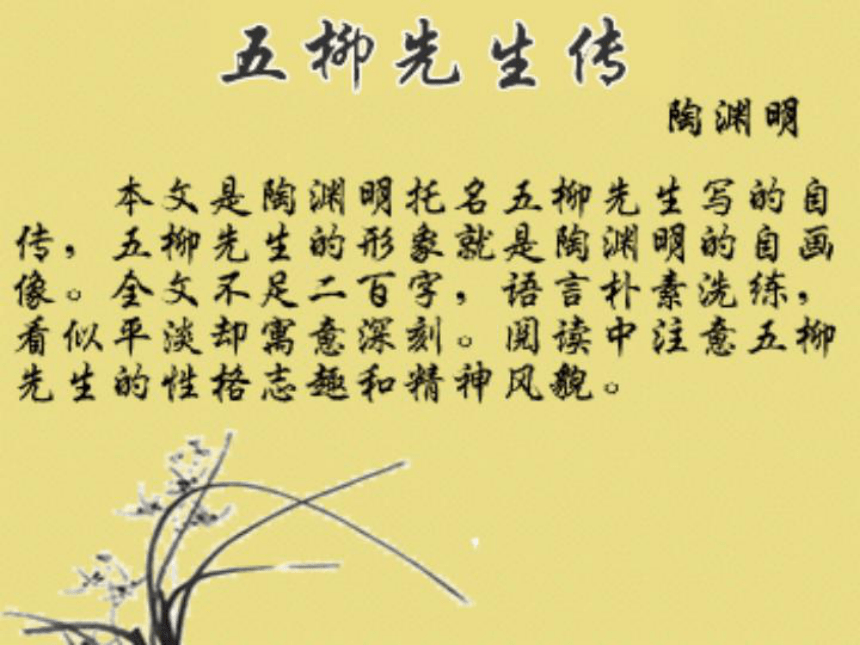 五柳先生传
陶渊明
本文是陶渊明托名五柳先生写的自
传，五柳先生的形象就是陶渊明的自画
像。全文不足二百字，语言朴素洗练，
看似平淡却寓意深刻。阅读中注意五柳
先生的性格志趣和精神风貌。